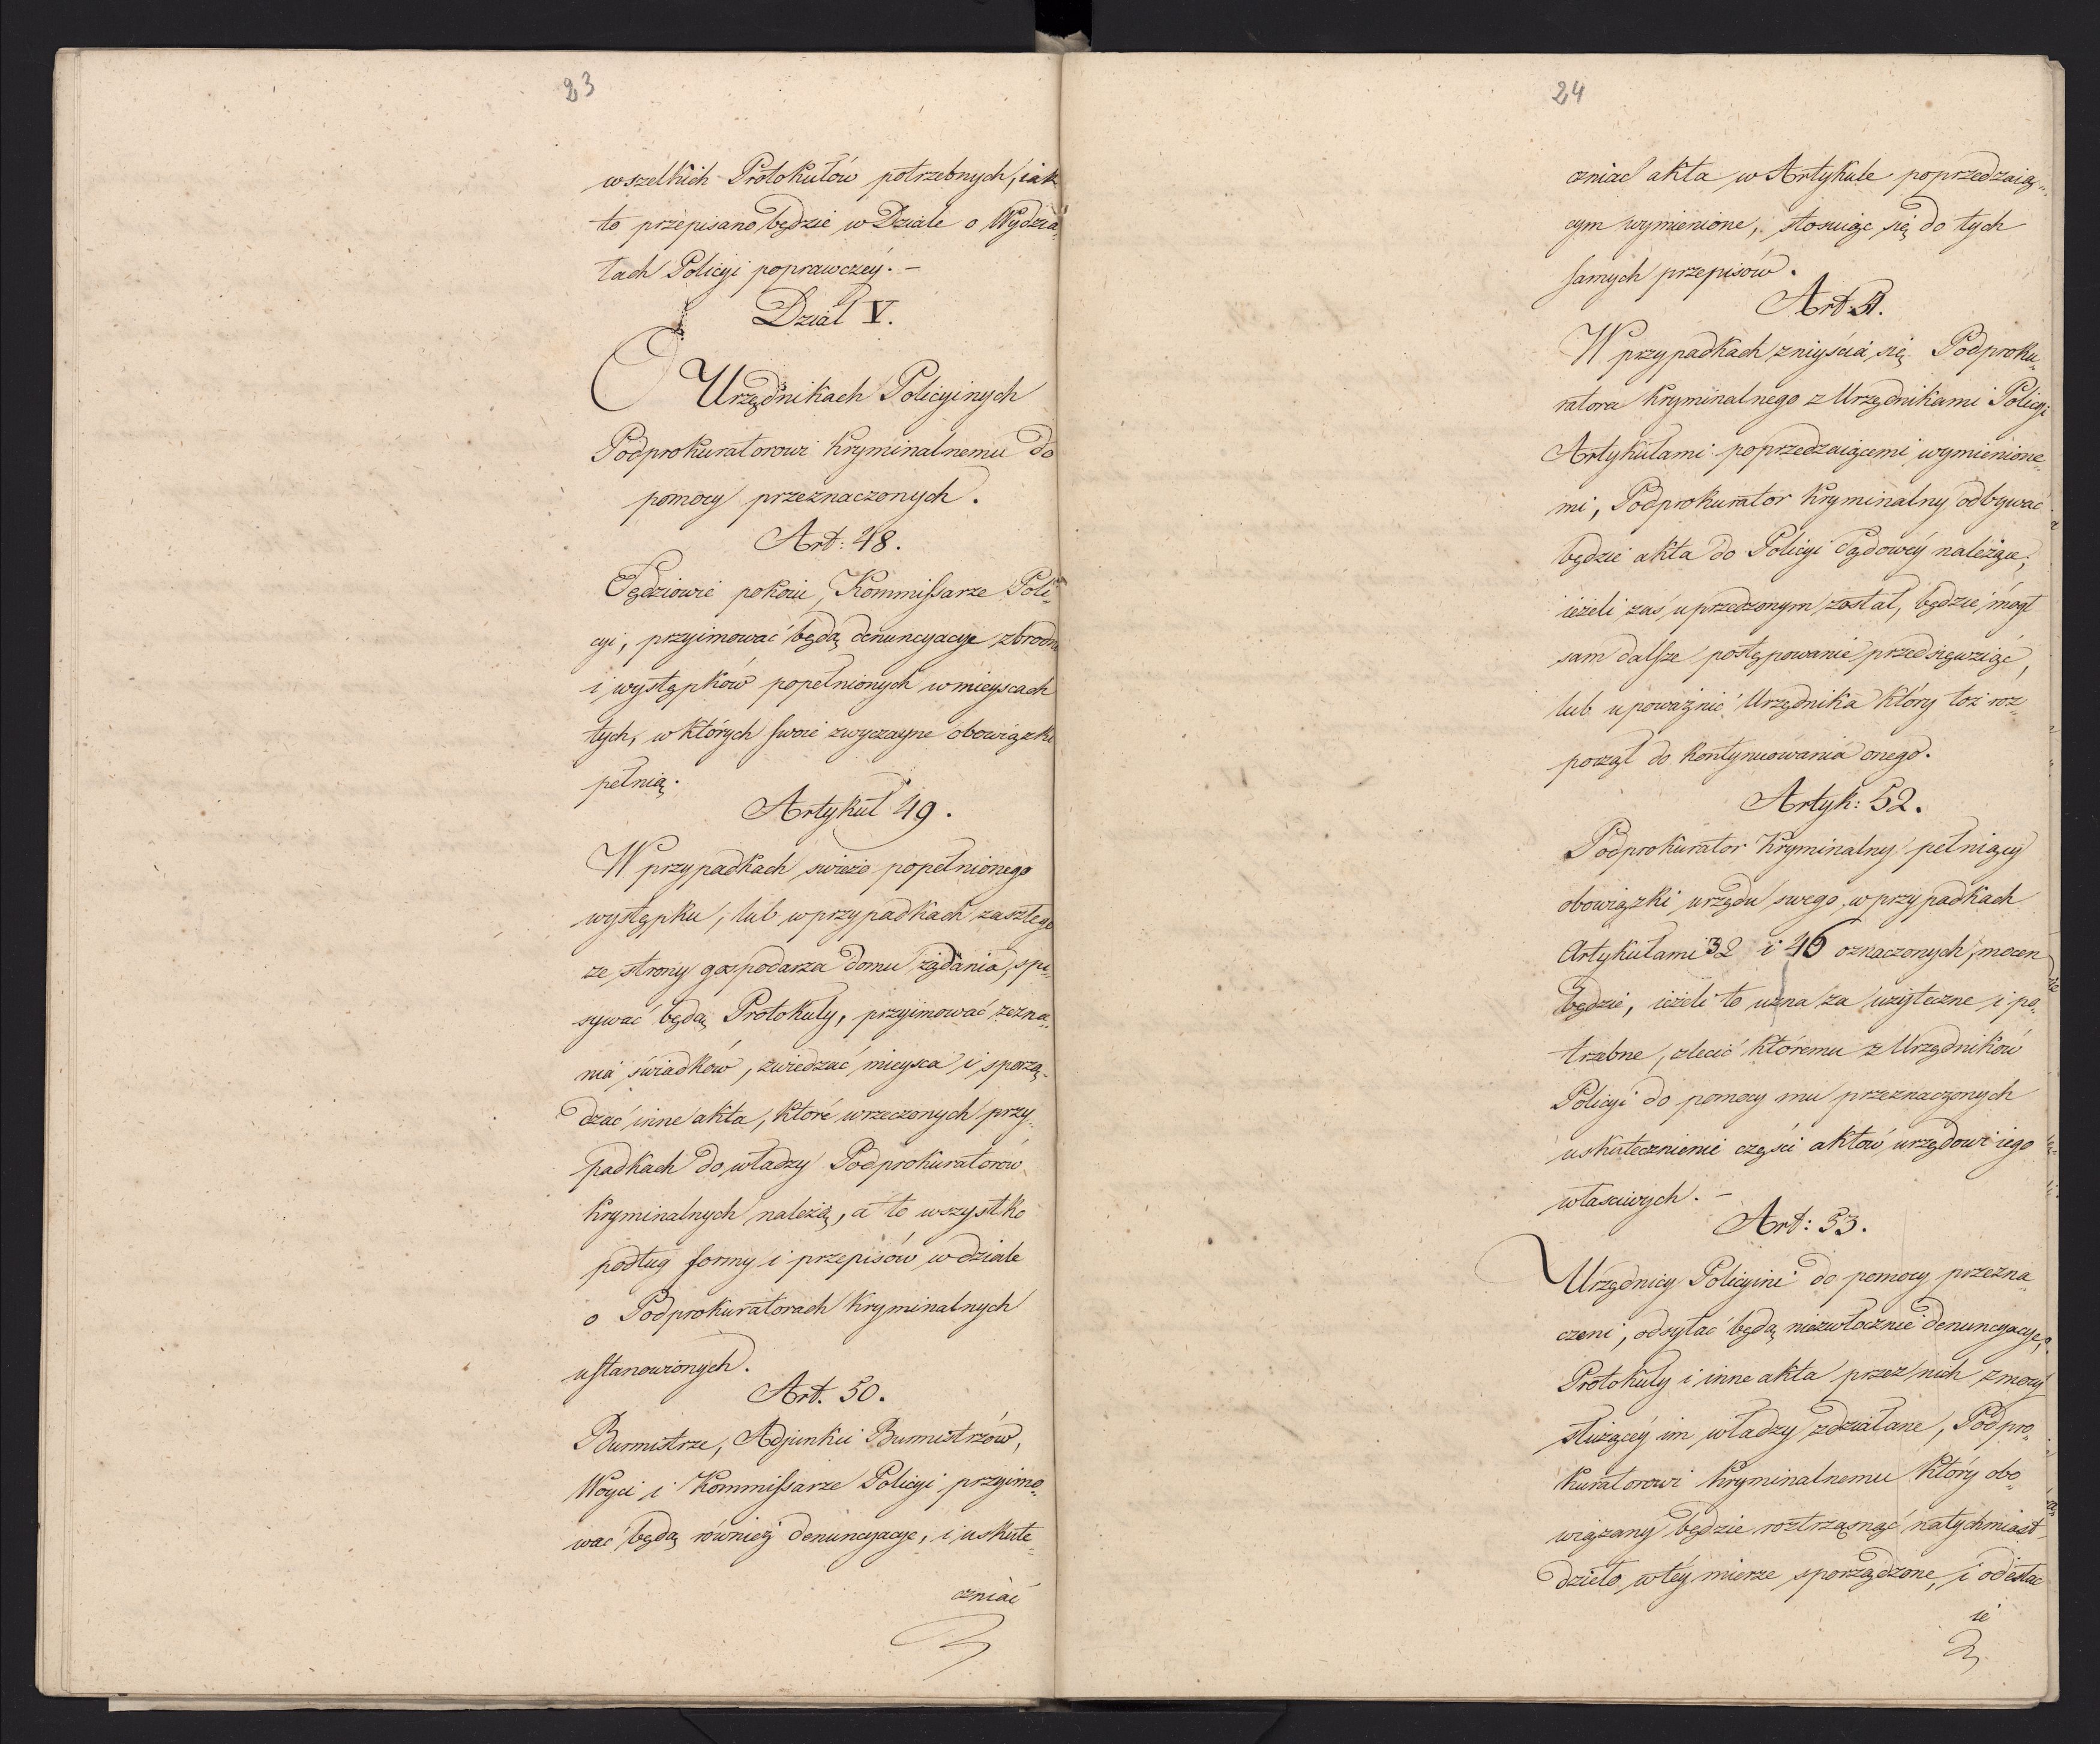 23
wszelkich Protokułów potrzebnych, iak
to przepisano będzie w Dziale o Wydzia„
łach Policyi poprawczéy. —
Dział V.
O Urzędnikach Policyinych
Podprokuratorowi Kryminalnemu do
pomocy przeznaczonych.
Art: 48.
Sędziowie pokoiu, Kommissarze Poli„
cyi, przyimować będą denuncyacye zbrodni
i występków popełnionych w mieyscach
tych, w których swoie zwyczayne obowiązki
pełnią.
Artykuł 49.
W przypadkach świeżo popełnionego
występku, lub w przypadkach zaszłego
ze strony gospodarza domu żądania, spi„
sywać będą Protokuły, przyimować zezna„
nia świadków, zwiedzać mieysca i sporzą„
dzać inne akta, które w rzeczonych przy„
padkach do władzy Podprokuratorów
Kryminalnych należą, a to wszystko
podług formy i przepisów w dziale
o Podprokuratorach Kryminalnych
ustanowionych.
Art. 50.
Burmistrze, Adjunkci Burmistrzów,
Woyci i Kommissarze Policyi przyimo„
wać będą również denuncyacye, i uskute„
czniać
24
czniać akta w Artykule poprzedzaią„
cym wymienione, stosuiąc się do tych
samych przepisów.
Art. 51.
W przypadkach zniyścia się Podproku„
ratora Kryminalnego z Urzędnikami Policyi
Artykułami poprzedzaiącemi wymienione„
mi, Podprokurator Kryminalny odbywać
będzie akta do Policyi Sądowéy należące,
ieżeli zaś uprzedzonym został, będzie mógł
sam dalsze postępowanie przedsięwziąć,
lub upoważnić Urzędnika który toż roz„
począł do kontynuowania onego.
Artyk: 52.
Podprokurator Kryminalny pełniący
obowiązki urzędu swego, w przypadkach
Artykułami 32 i 46 oznaczonych, mocen
będzie, ieżeli to uzna za użyteczne i po„
trzebne, zlecić któremu z Urzędników
Policyi do pomocy mu przeznaczonych
uskutecznienie części aktów urzędowi iego
właściwych. —
Art: 53.
Urzędnicy Policyini do pomocy przezna„
czeni, odsyłać będą niezwłocznie denuncyacye,
Protokuły i inne akta przez nich z mocy
służącéy im władzy zdziałane, Podpro„
kuratorowi Kryminalnemu który obo„
wiązany będzie roztrząsnąć natychmiast
dzieło w téy mierze sporządzone, i odesłać
ie